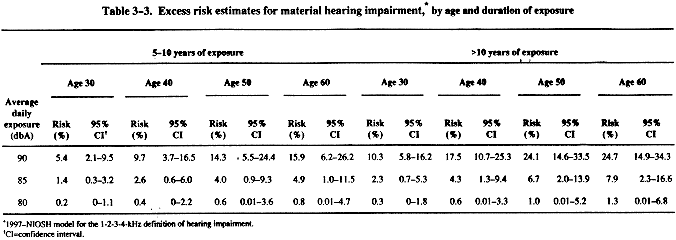 Table 3–3. Excess risk estimates for material hearing impairment,* by age and duration of exposure
5–10 years of exposure >10 years of exposure
Age 30 Age 40 Age 50 Age 60 Age 30 Age 40 Age 50 Age 60
Average
daily
exposure Risk 95% Risk 95% Risk 95% Risk 95% Risk 95% Risk 95% Risk 95% Risk 95%
(dbA) (%) CI† (%) CI (%) CI (%) CI (%) CI (%) CI (%) CI (%) CI
90 5.4 2.1–9.5 9.7 3.7–16.5 14.3 5.5–24.4 15.9 6.2–26.2 10.3 5.8–16.2 17.5 10.7–25.3 24.1 14.6–33.5 24.7 14.9–34.3
85 1.4 0.3–3.2 2.6 0.6–6.0 4.0 0.9–9.3 4.9 1.0–11.5 2.3 0.7–5.3 4.3 1.3–9.4 6.7 2.0–13.9 7.9 2.3–16.6
80 0.2 0–1.1 0.4 0–2.6 0.6 0.01–3.6 0.8 0.01–4.7 0.3 0–1.8 0.6 0.01–3.3 1.0 0.01–5.2 1.3 0.01–6.8
*1997–NIOSH model for the 1-2-3-4-kHz definition of hearing impairment.
†CI=confidence interval.